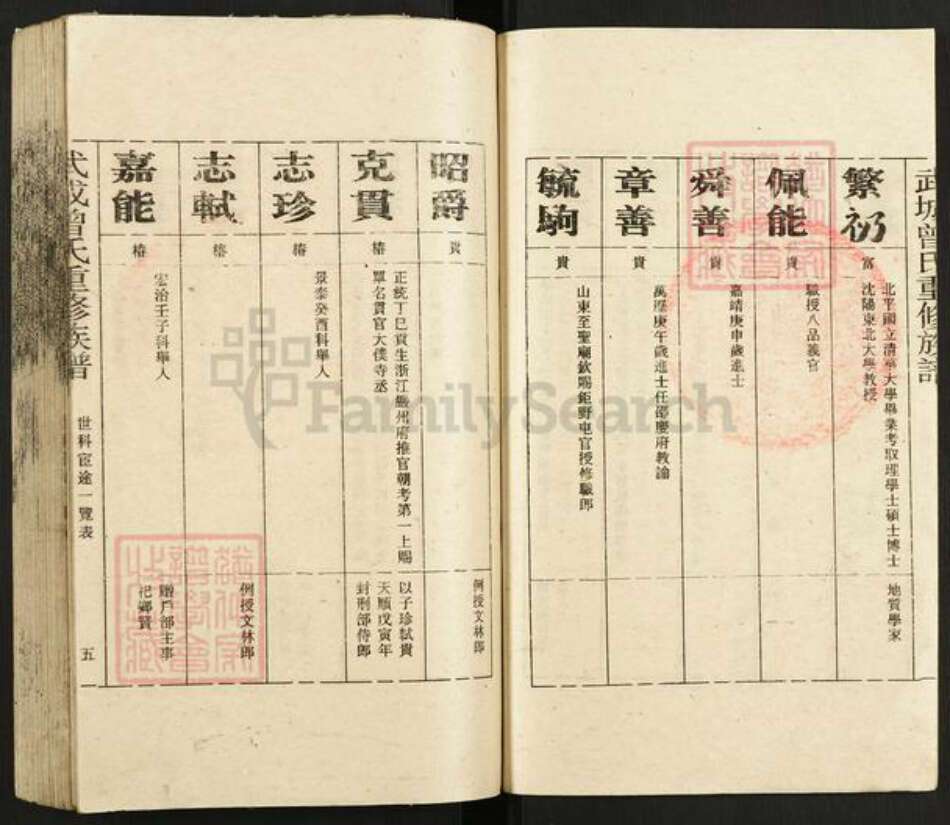 武城曾氏重修族譜
繁礽
富
北平國立清華大學畢業考取理學士碩士博士
沈陽東北大學教授
地質學家
佩能
貴
職授八品義官
舜善
貴
嘉靖庚申歲進士
章善
貴
萬歷庚午歲進士任邵慶府教諭
毓駒
貴
山東至聖廟欽賜鉅野屯官授修職郎
昭爵
貴
例授文林郎
克貫
椿
正統丁巳貢生浙江嚴州府推官朝考第一上賜
單名貫官大僕寺丞
以子珍軾貴
天順戊寅年
封刑部侍郎
志珍
椿
景泰癸酉科舉人
志軾
椿
例授文林郎
嘉能
椿
宏治壬子科舉人
贈戶部主事
祀鄉賢
武城曾氏重修族譜
世科宦途一覽表
五
FamilySearch